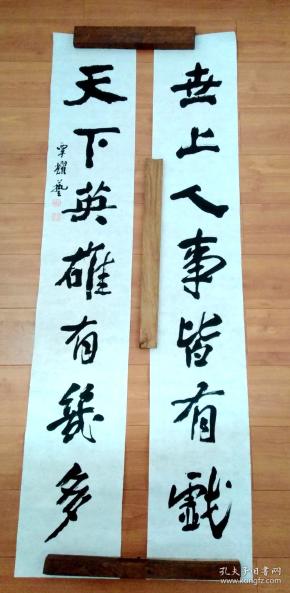 世上人事皆有戲
天下英雄有幾多
覃耀藝
孔夫子旧书网
www.kongfz.com